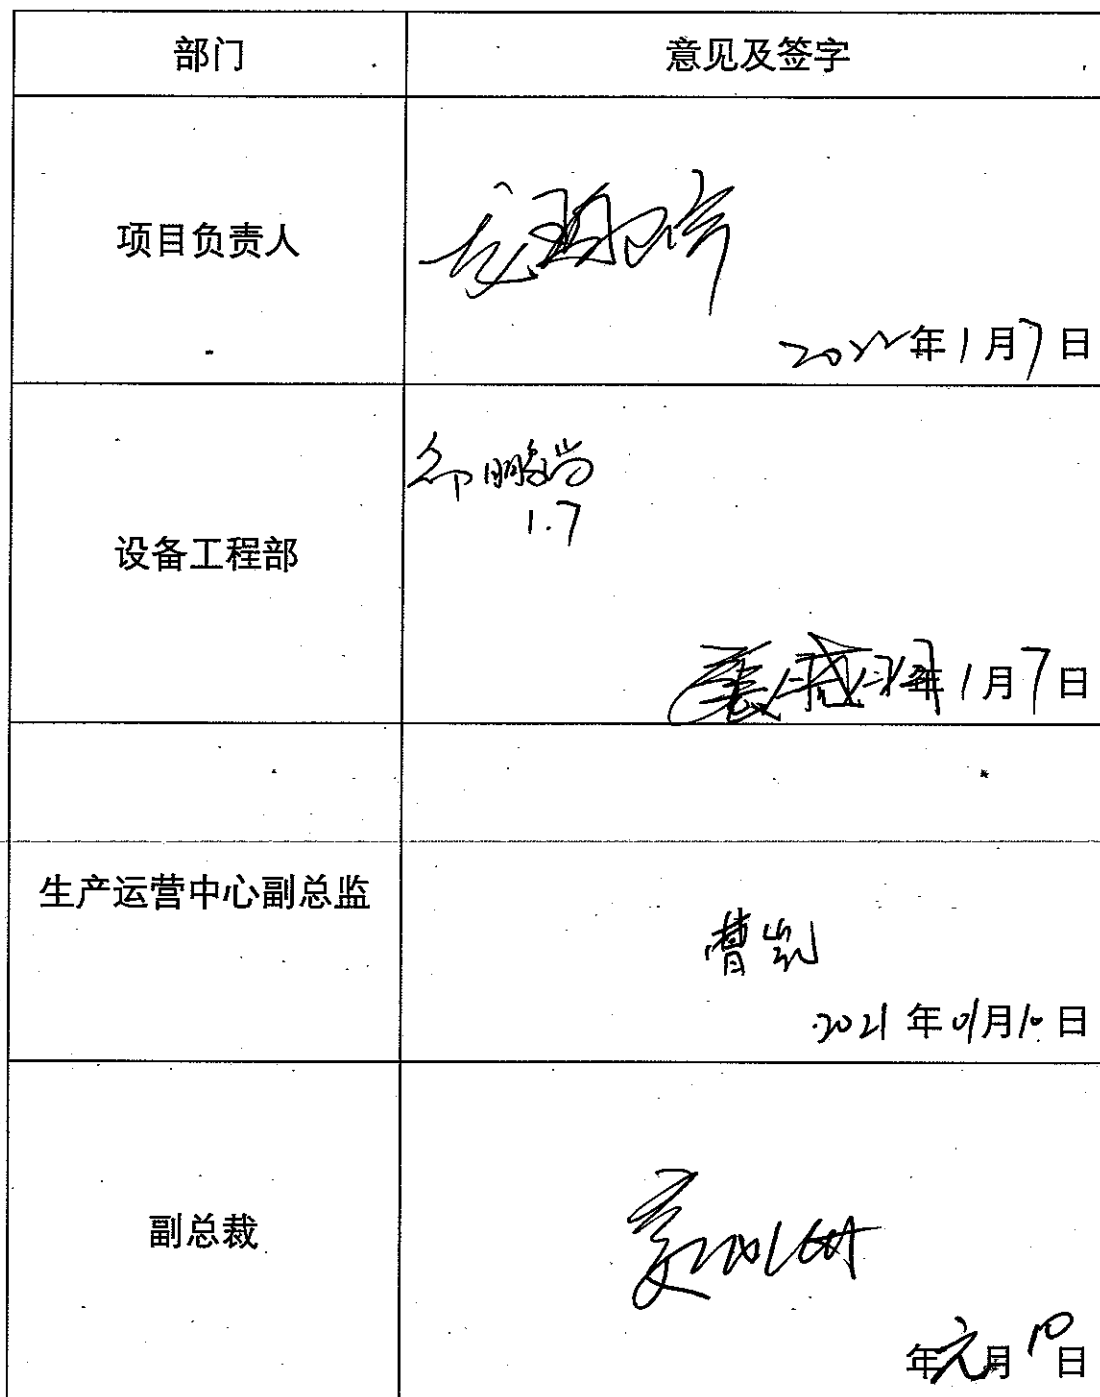 部门 意见及签字
项目负责人
2022年1月7日
设备工程部
1.7
年1月7日
生产运营中心副总监
曹凯
2021年01月10日
副总裁
年元月10日